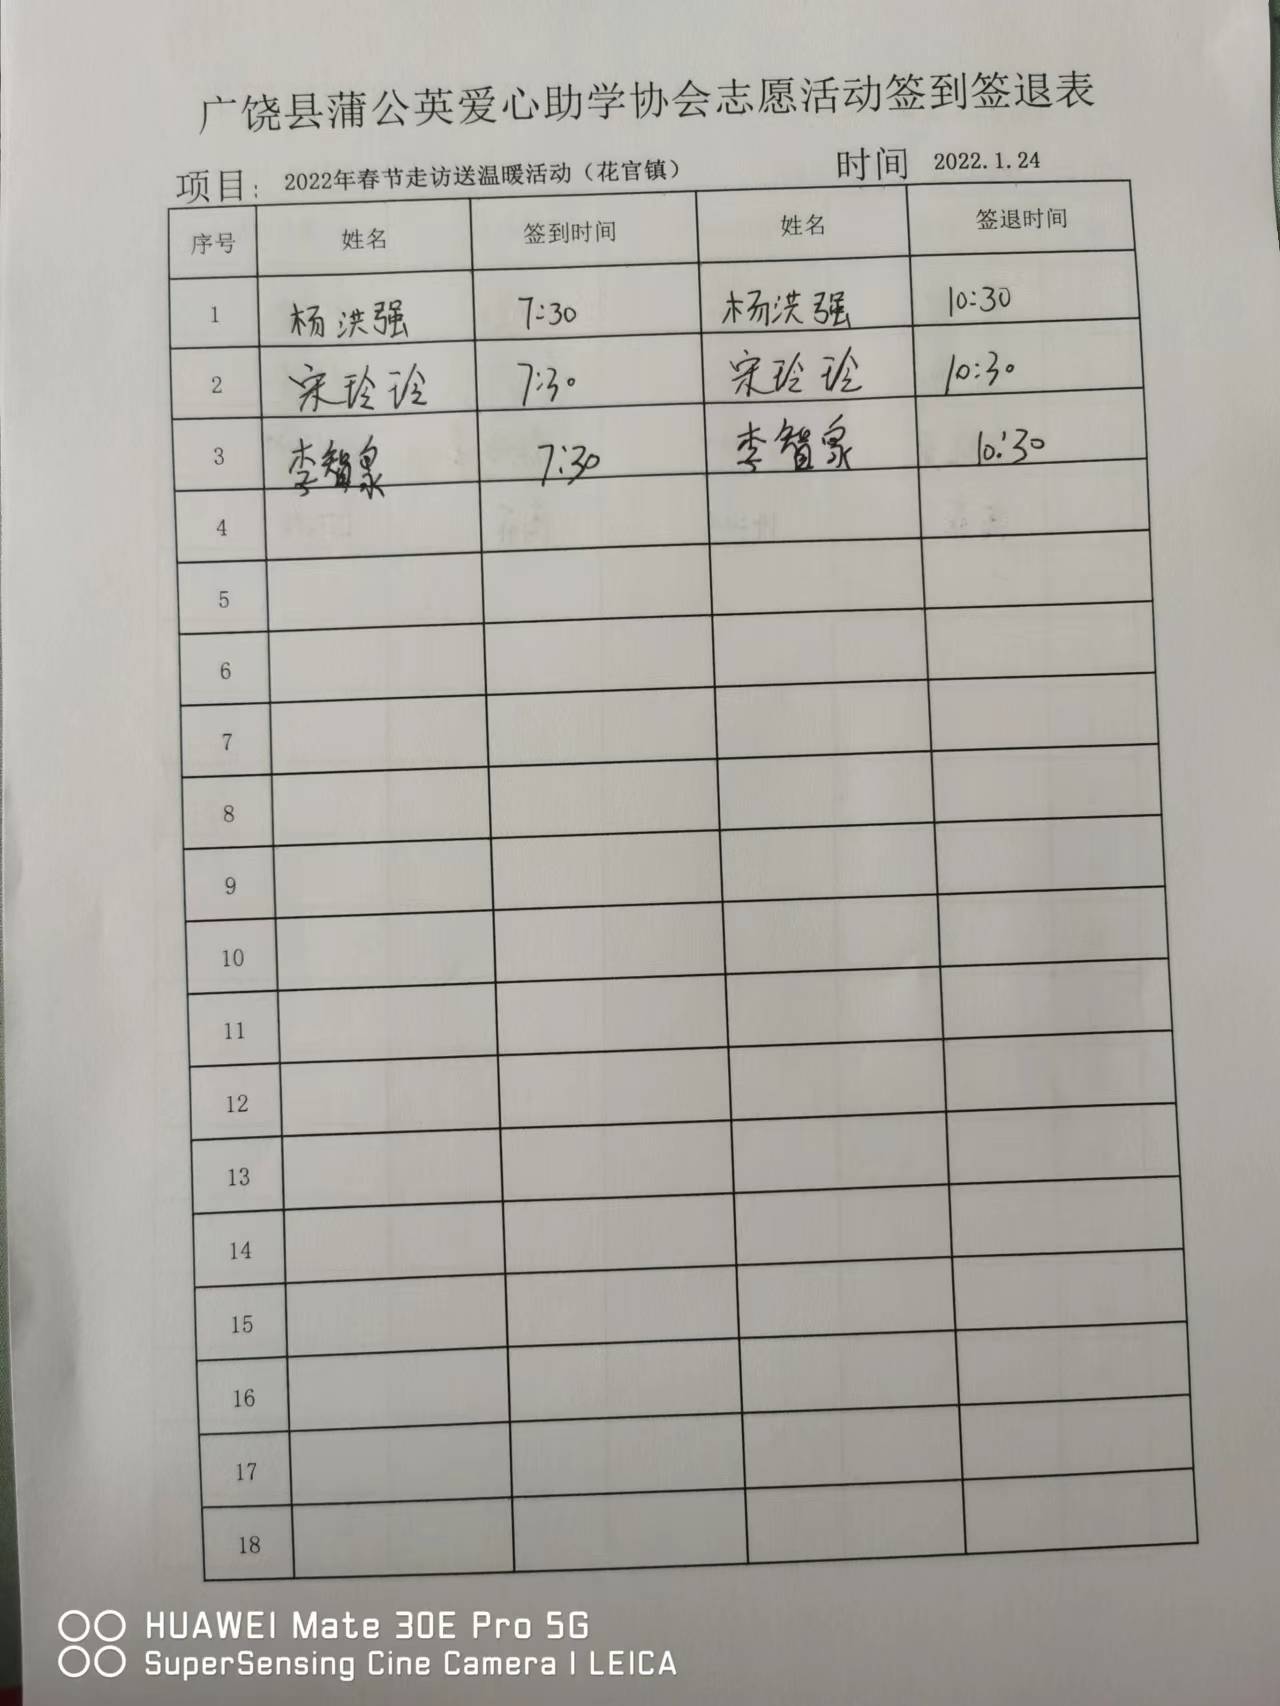 广饶县蒲公英爱心助学协会志愿活动签到签退表
项目: 2022年春节走访送温暖活动（花官镇） 时间 2022.1.24
序号 姓名 签到时间 姓名 签退时间
1 杨洪强 7:30 杨洪强 10:30
2 宋玲玲 7:30 宋玲玲 10:30
3 李智泉 7:30 李智泉 10:30
4
5
6
7
8
9
10
11
12
13
14
15
16
17
18
HUAWEI Mate 30E Pro 5G
SuperSensing Cine Camera | LEICA